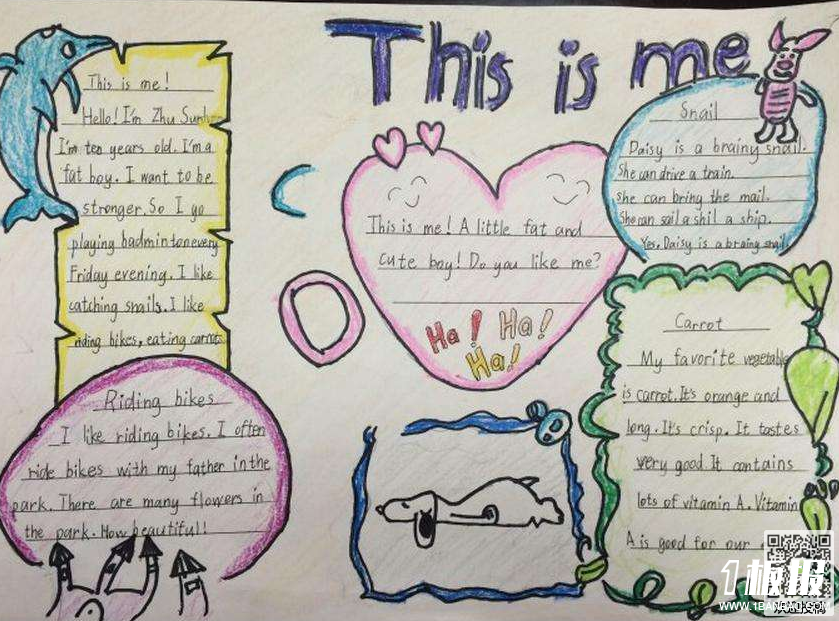 This is me
This is me!
Hello! I'm Zhu
I'm ten years old. I'm a
fat boy. I want to be
stronger. So I go
playing badminton every
Friday evening. I like
catching snails. I like
riding bikes, eating carrots
Riding bikes
I like riding bikes. I often
ride bikes with my father in the
park. There are many flowers in
the park. How beautiful!
This is me! A little fat and
cute boy! Do you like me?
Ha! Ha!
Ha!
Snail
Daisy is a brainy snail.
She can drive a train.
she can bring the mail.
She can sail a shil a ship.
Yes, Daisy is a brainy snail.
Carrot
My favorite vegetable
is carrot. It's orange and
long. It's crisp. It tastes
very good. It contains
lots of vitamin A. Vitamin
A is good for our
1板报
WWW.1BANBAO.COM